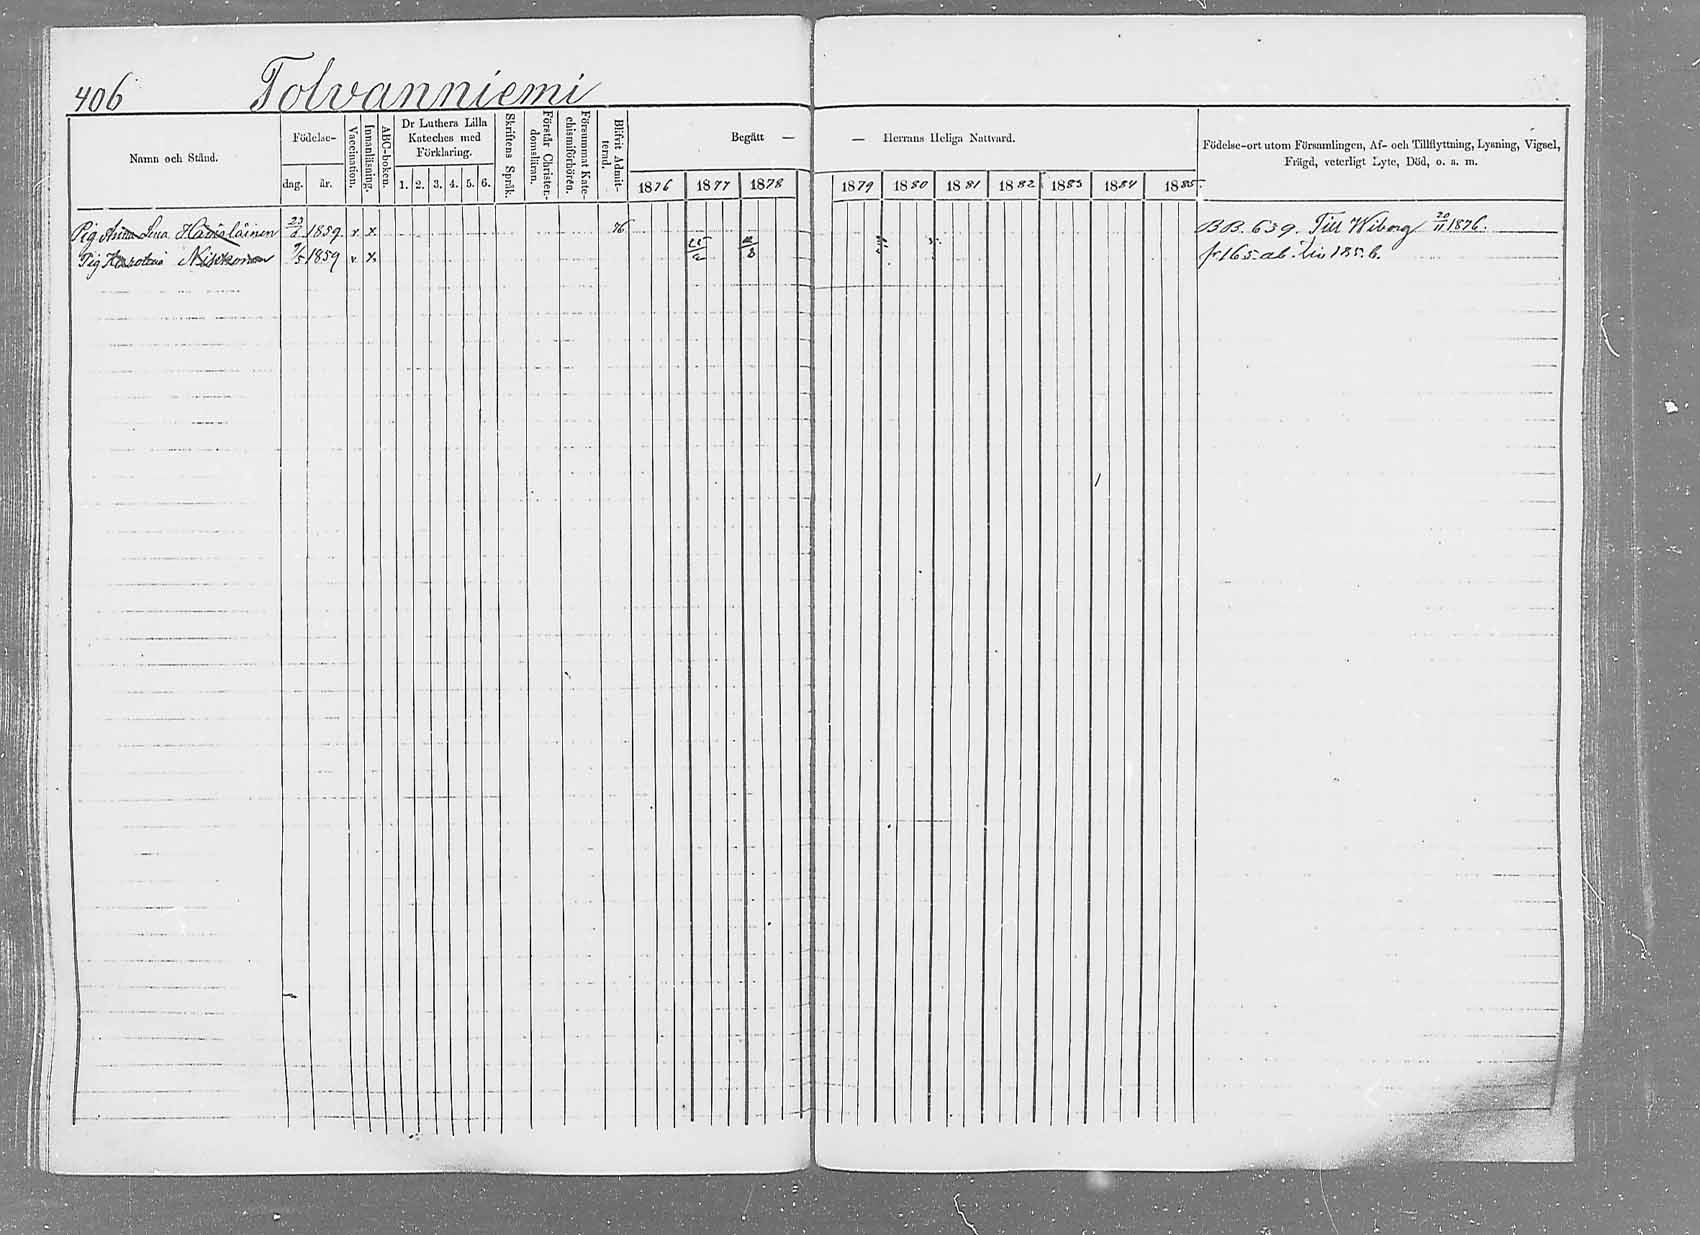 406 Tolvanniemi
Namn och Stånd.
Födelse-
dag. år.
Vaccination.
Innanläsning.
ABC-boken.
Dr Luthers Lilla
Kateches med
Förklaring.
1. 2. 3. 4. 5. 6.
Skriftens Språk.
Förstår Christen-
domsläran.
Försummat Kate-
chismiförhören.
Blifvit Admit-
terad.
Begått — — Herrans Heliga Nattvard.
1876 1877 1878 1879 1880 1881 1882 1883 1884 1885.
Födelse-ort utom Församlingen, Af- och Tillflyttning, Lysning, Vigsel,
Frägd, veterligt Lyte, Död, o. s. m.
Pig Anna Lena 23/6 1859. v x 76 BB. 639. Till Wiborg 20/11 1876.
Pig 9/5 1859 v x fr 165.